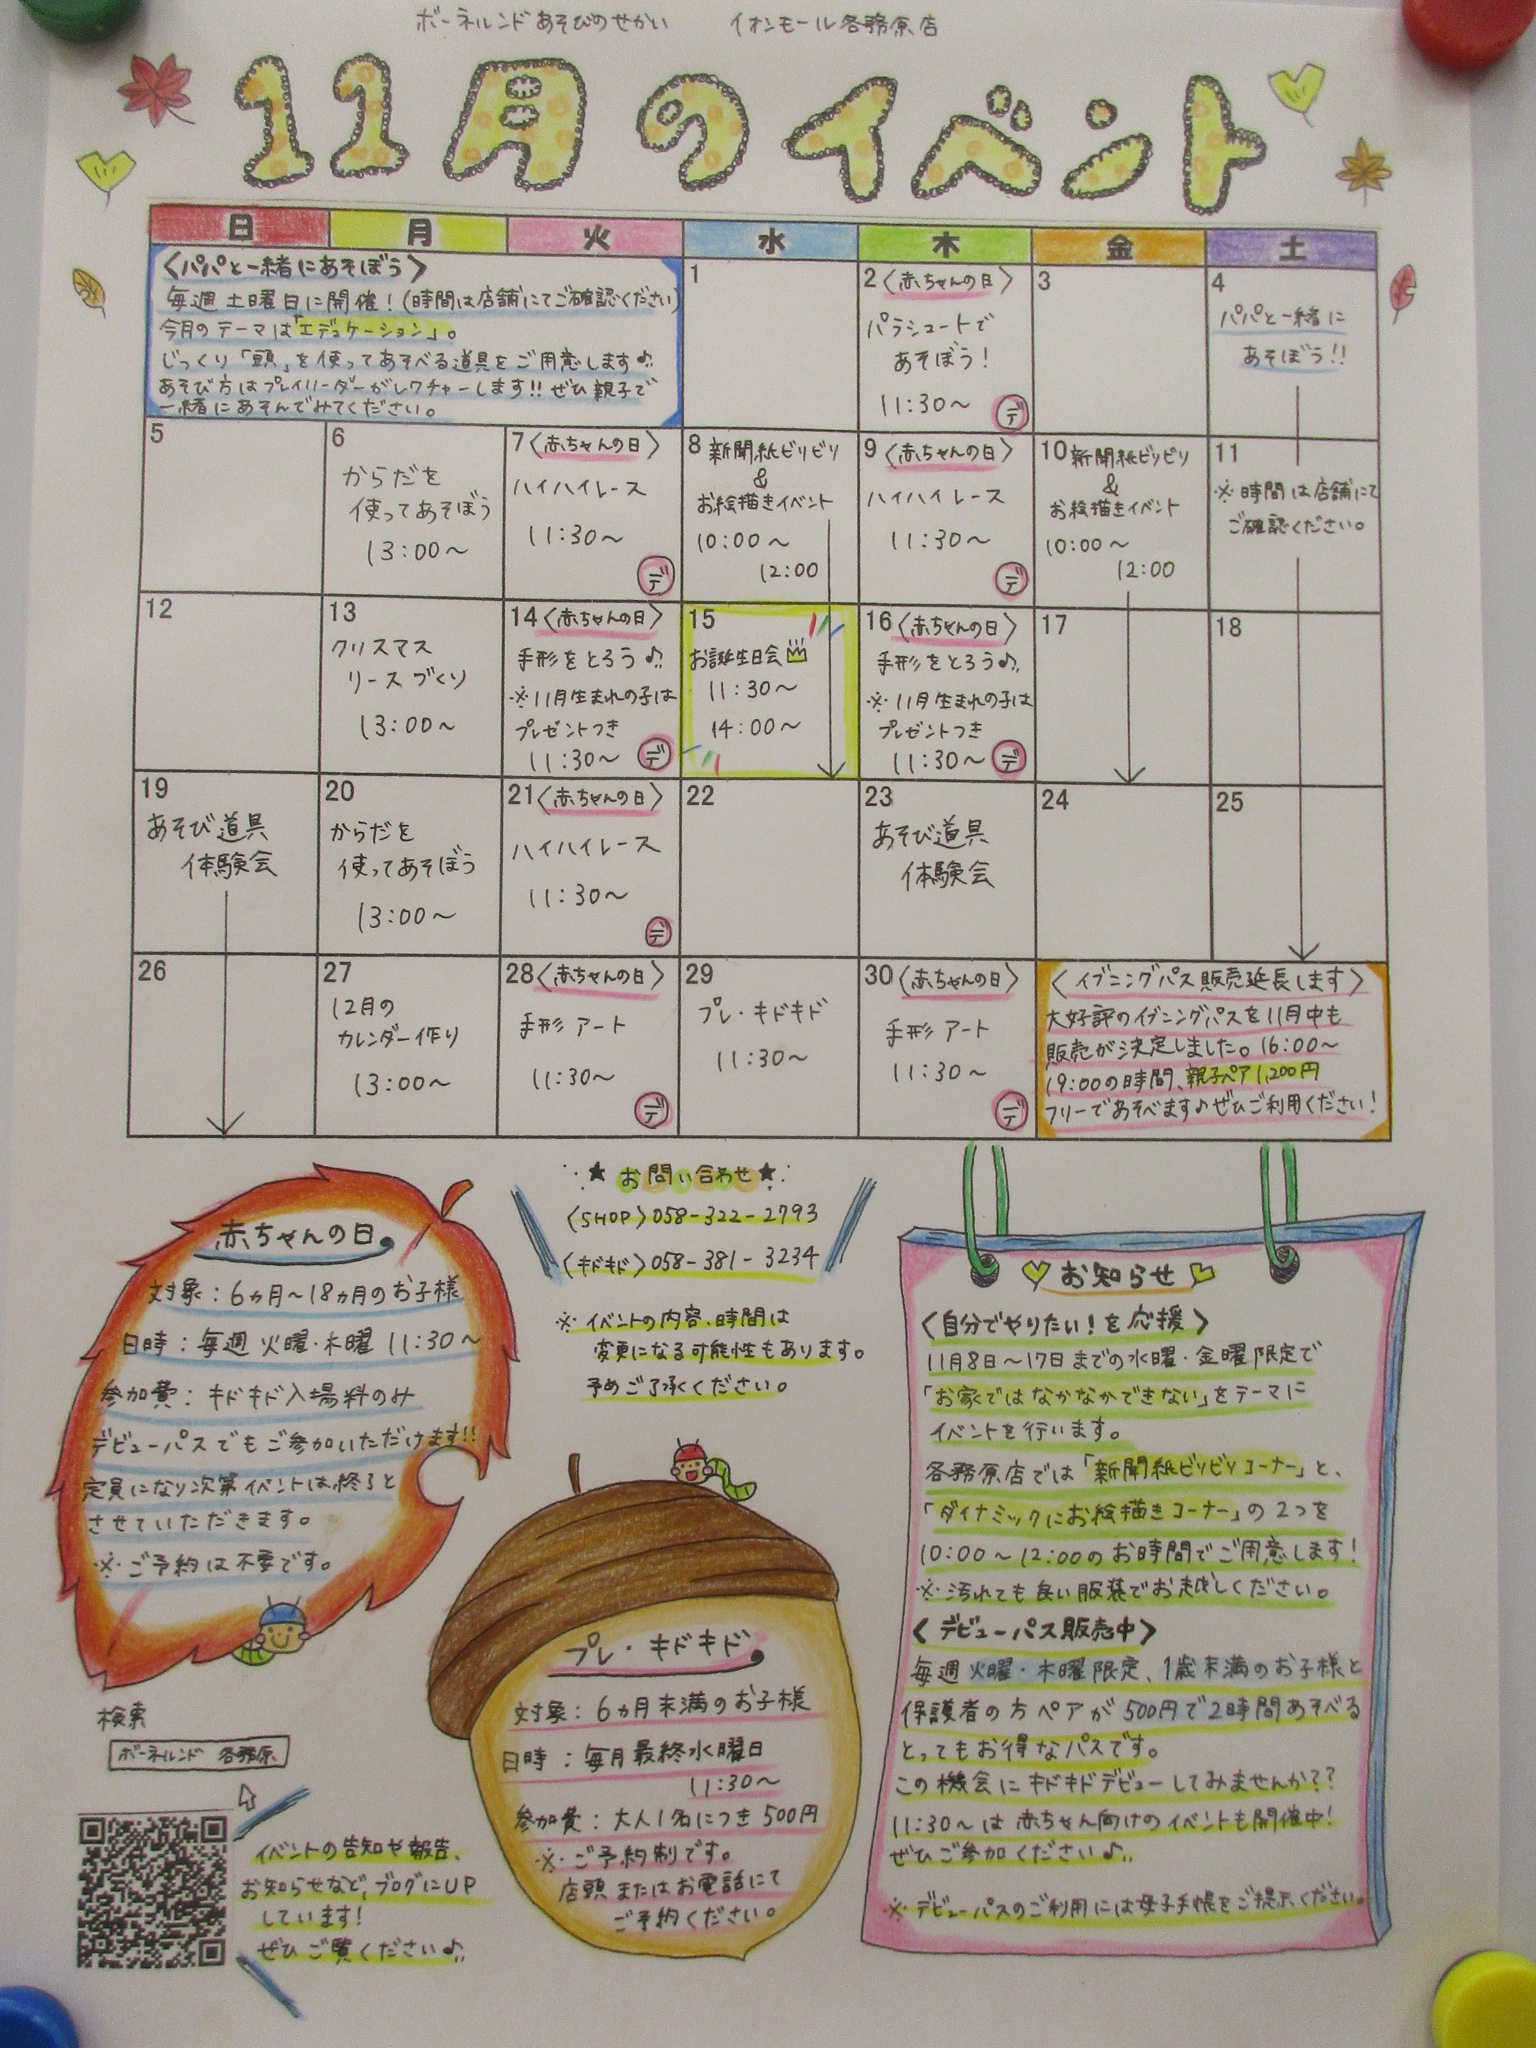 ボーネルンドあそびのせかい イオンモール各務原店
11月のイベント
日 月 火 水 木 金 土
〈パパと一緒にあそぼう〉
毎週土曜日に開催！(時間は店舗にてご確認ください)
今月のテーマは「エデュケーション」。
じっくり「頭」を使ってあそべる道具をご用意します♪
あそび方はプレイリーダーがレクチャーします!!ぜひ親子で
一緒にあそんでみてください。
1
2〈赤ちゃんの日〉
パラシュートで
あそぼう！
11:30〜
デ
3
4
パパと一緒に
あそぼう!!
5
6
からだを
使ってあそぼう
13:00〜
7〈赤ちゃんの日〉
ハイハイレース
11:30〜
デ
8 新聞紙ビリビリ
&
お絵描きイベント
10:00〜
12:00
9〈赤ちゃんの日〉
ハイハイレース
11:30〜
デ
10 新聞紙ビリビリ
&
お絵描きイベント
10:00〜
12:00
11
※時間は店舗にて
ご確認ください。
12
13
クリスマス
リースづくり
13:00〜
14〈赤ちゃんの日〉
手形をとろう♪
※11月生まれの子は
プレゼントつき
11:30〜 デ
15
お誕生日会
11:30〜
14:00〜
16〈赤ちゃんの日〉
手形をとろう♪
※11月生まれの子は
プレゼントつき
11:30〜 デ
17
18
19
あそび道具
体験会
20
からだを
使ってあそぼう
13:00〜
21〈赤ちゃんの日〉
ハイハイレース
11:30〜
デ
22
23
あそび道具
体験会
24
25
26
27
12月の
カレンダー作り
13:00〜
28〈赤ちゃんの日〉
手形アート
11:30〜
デ
29
プレ・キドキド
11:30〜
30〈赤ちゃんの日〉
手形アート
11:30〜
デ
〈イブニングパス販売延長します〉
大好評のイブニングパスを11月中も
販売が決定しました。16:00〜
19:00の時間、親子ペア1,200円
フリーであそべます♪ぜひご利用ください！
赤ちゃんの日
対象：6ヵ月〜18ヵ月のお子様
日時：毎週 火曜・木曜 11:30〜
参加費：キドキド入場料のみ
デビューパスでもご参加いただけます!!
定員になり次第イベントは終了と
させていただきます。
※ご予約は不要です。
★お問い合わせ★
〈SHOP〉058-322-2793
〈キドキド〉058-381-3234
※イベントの内容、時間は
変更になる可能性もあります。
予めご了承ください。
プレ・キドキド
対象：6ヵ月未満のお子様
日時：毎月最終水曜日
11:30〜
参加費：大人1名につき500円
※ご予約制です。
店頭またはお電話にて
ご予約ください。
お知らせ
〈自分でやりたい！を応援〉
11月8日〜17日までの水曜・金曜限定で
「お家ではなかなかできない」をテーマに
イベントを行います。
各務原店では「新聞紙ビリビリコーナー」と、
「ダイナミックにお絵描きコーナー」の2つを
10:00〜12:00のお時間でご用意します！
※汚れても良い服装でお越しください。
〈デビューパス販売中〉
毎週火曜・木曜限定、1歳未満のお子様と
保護者の方ペアが500円で2時間あそべる
とってもお得なパスです。
この機会にキドキドデビューしてみませんか??
11:30〜は赤ちゃん向けのイベントも開催中！
ぜひご参加ください♪
※デビューパスのご利用には母子手帳をご提示ください。
検索
ボーネルンド 各務原
イベントの告知や報告、
お知らせなど、ブログにUP
しています！
ぜひご覧ください♪